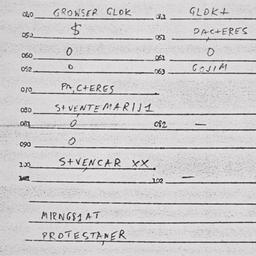 040 GROWSER GLOK 041 GLOK+
050 $ 051 PACTERES
060 0 061 0
052 0 063 GOJIM
070 PACTERES
080 S+VENTEMARIJ1
081 0 082 —
090 0
100 S+VENCAR XX
102 —
MIRNGS1AT
PROTESTANER